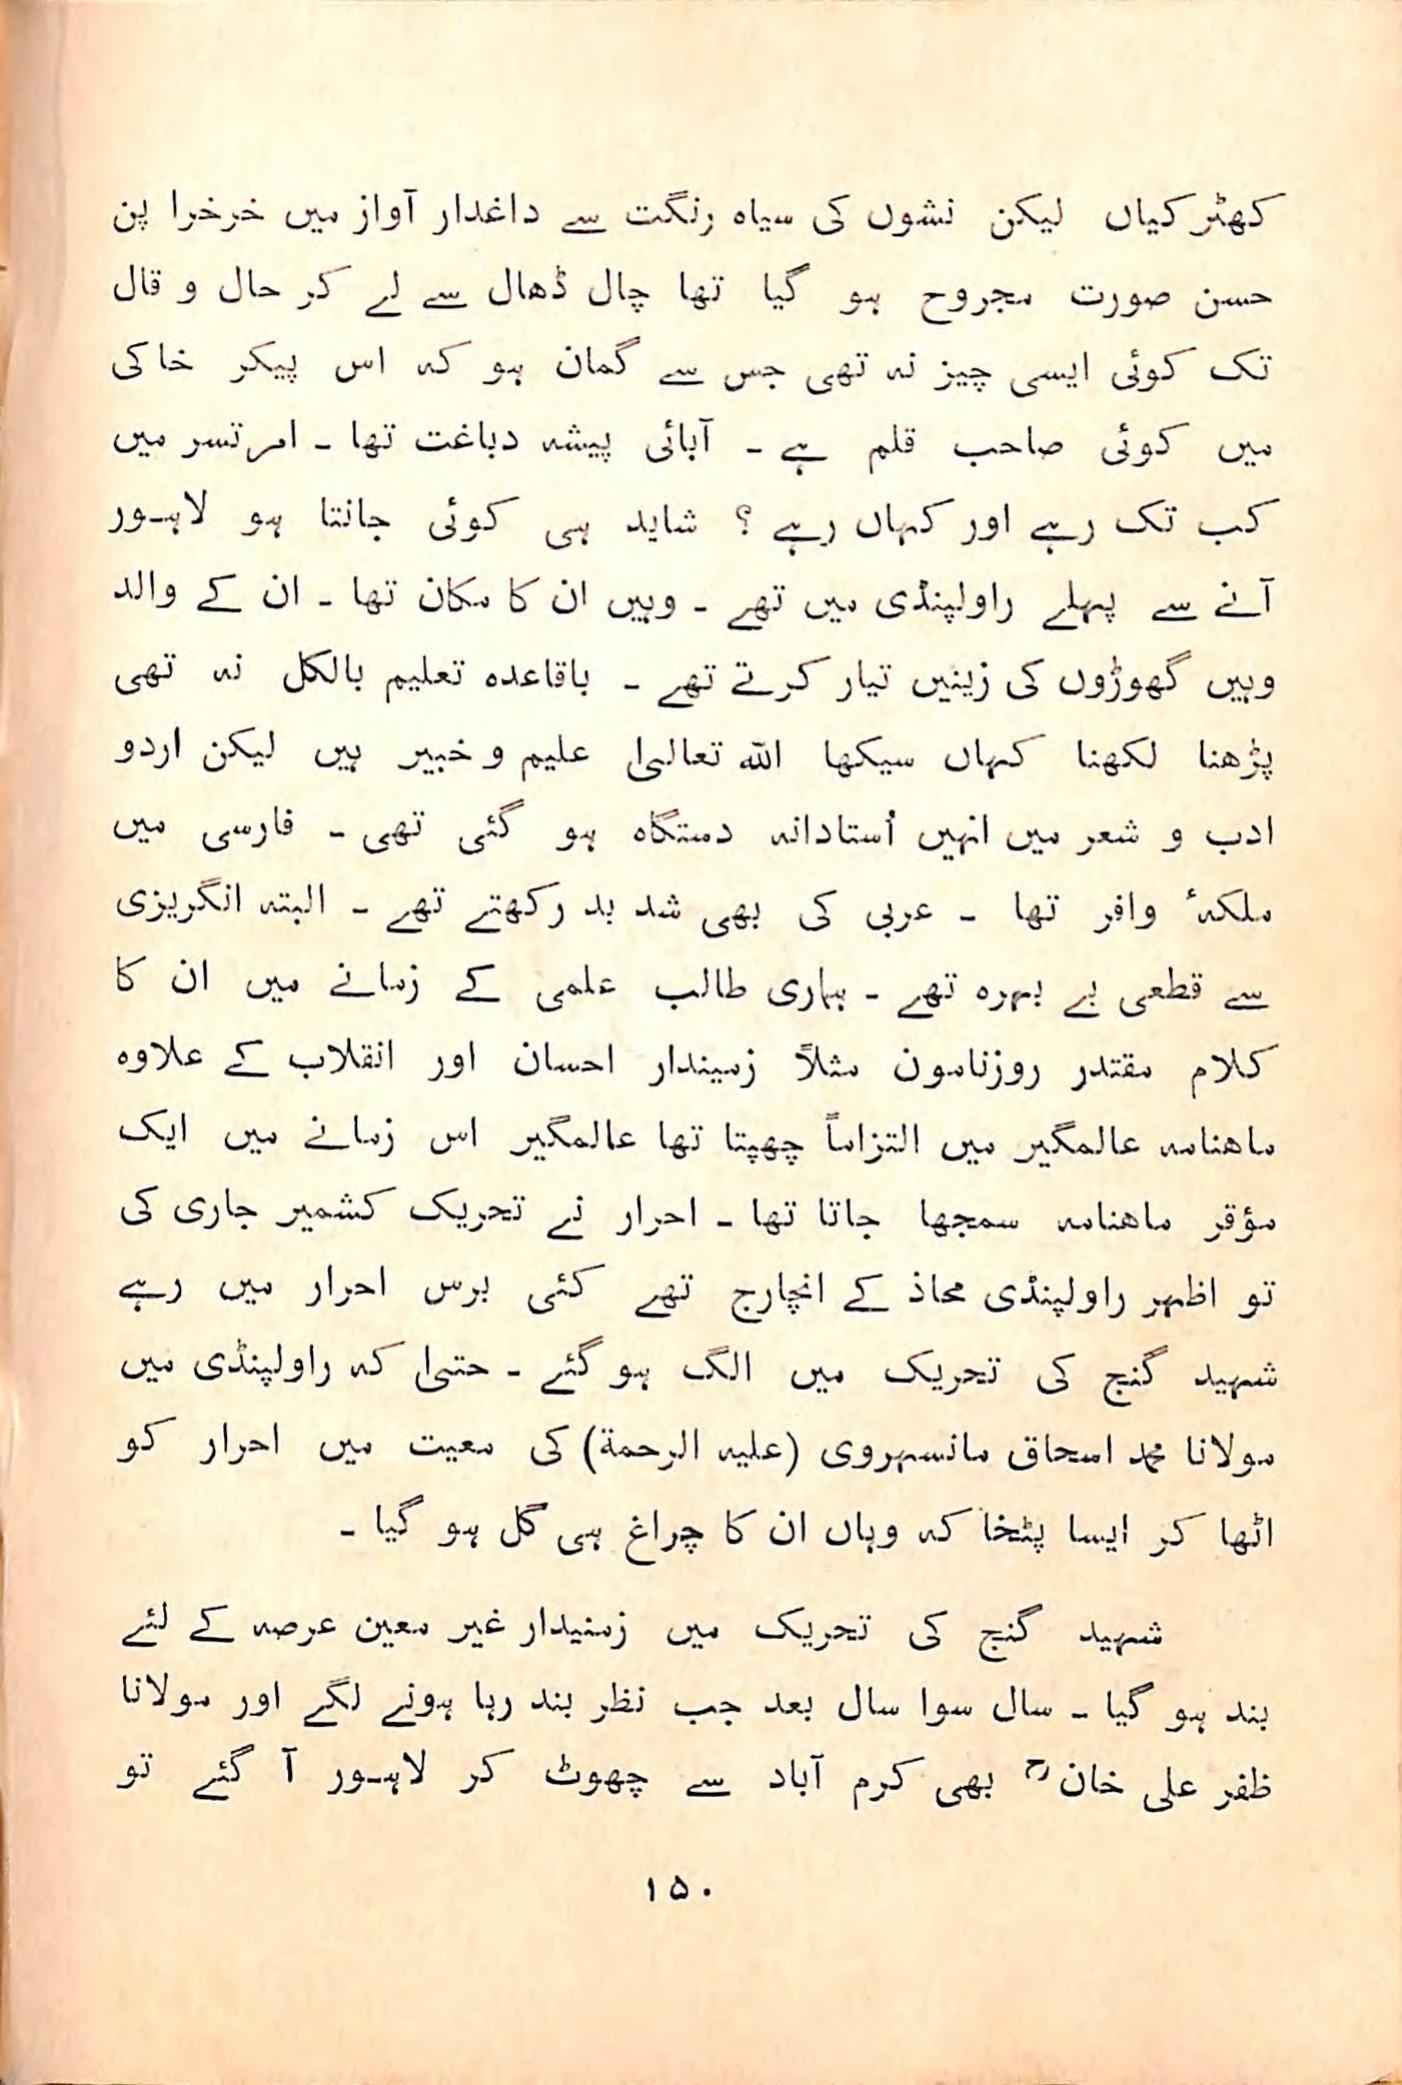 کھڑکیاں لیکن نشوں کی سیاہ رنگت سے داغدار آواز میں خرخرا پن
حسن صورت مجروح ہو گیا تھا چال ڈھال سے لے کر حال و قال
تک کوئی ایسی چیز نہ تھی جس سے گمان ہو کہ اس پیکر خاکی
میں کوئی صاحب قلم ہے ۔ آبائی پیشہ دباغت تھا ۔ امرتسر میں
کب تک رہے اور کہاں رہے ؟ شاید ہی کوئی جانتا ہو لاہور
آنے سے پہلے راولپنڈی میں تھے ۔ وہیں ان کا مکان تھا ۔ ان کے والد
وہیں گھوڑوں کی زینیں تیار کرتے تھے ۔ باقاعدہ تعلیم بالکل نہ تھی
پڑھنا لکھنا کہاں سیکھا اللہ تعالیٰ علیم و خبیر ہیں لیکن اردو
ادب و شعر میں انہیں اُستادانہ دستگاہ ہو گئی تھی ۔ فارسی میں
ملکہٴ وافر تھا ۔ عربی کی بھی شد بد رکھتے تھے ۔ البتہ انگریزی
سے قطعی بے بہرہ تھے ۔ ہماری طالب علمی کے زمانے میں ان کا
کلام مقتدر روزناموں مثلاً زمیندار احسان اور انقلاب کے علاوہ
ماہنامہ عالمگیر میں التزاماً چھپتا تھا عالمگیر اس زمانے میں ایک
مؤقر ماہنامہ سمجھا جاتا تھا ۔ احرار نے تحریک کشمیر جاری کی
تو اظہر راولپنڈی محاذ کے انچارج تھے کئی برس احرار میں رہے
شہید گنج کی تحریک میں الگ ہو گئے ۔ حتیٰ کہ راولپنڈی میں
مولانا محمد اسحاق مانسہروی (علیہ الرحمۃ) کی معیت میں احرار کو
اٹھا کر ایسا پٹخا کہ وہاں ان کا چراغ ہی گل ہو گیا ۔
شہید گنج کی تحریک میں زمنیدار غیر معین عرصہ کے لئے
بند ہو گیا ۔ سال سوا سال بعد جب نظر بند رہا ہونے لگے اور مولانا
ظفر علی خانؒ بھی کرم آباد سے چھوٹ کر لاہور آ گئے تو
۱۵۰